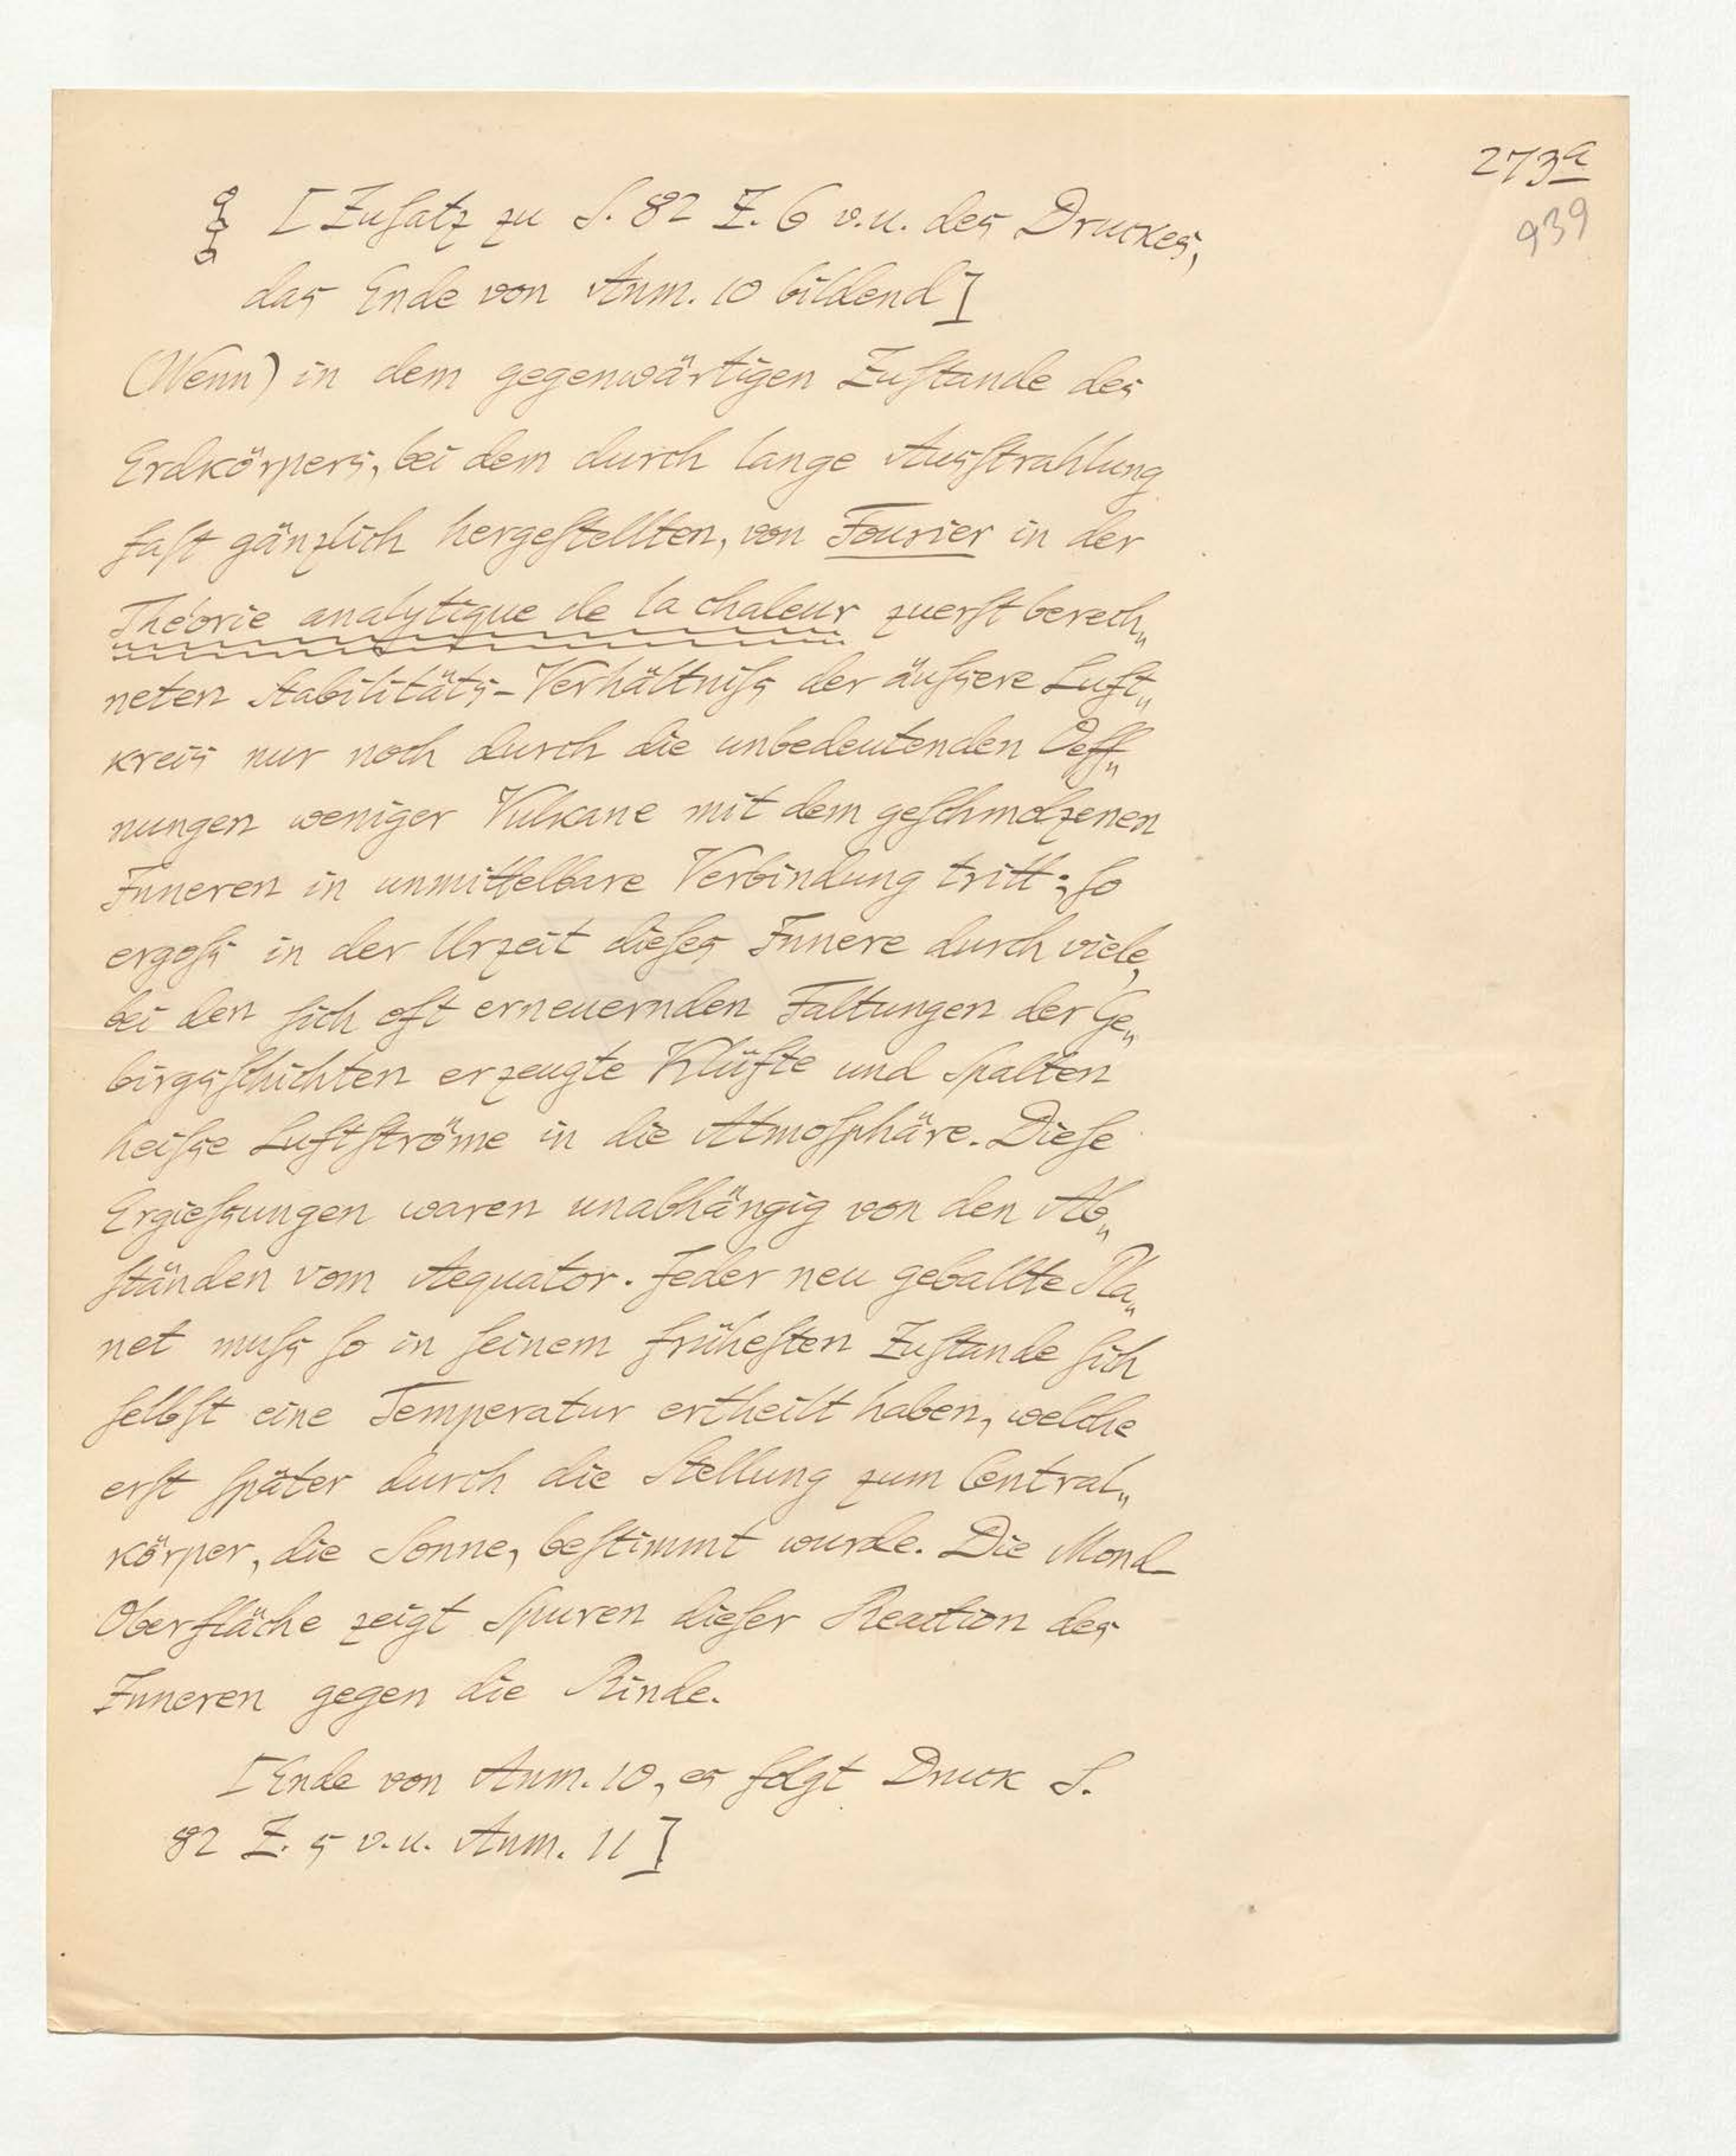 273a
939
§ [Zusatz zu S. 82 Z. 6 v.u. des Druckes,
das Ende von Anm. 10 bildend]
(Wenn) in dem gegenwärtigen Zustande des
Erdkörpers, bei dem durch lange Ausstrahlung
fast gänzlich hergestellten, von Fourier in der
Théorie analytique de la chaleur zuerst berech„
neten Stabilitäts-Verhältniss der äussere Luft„
kreis nur noch durch die unbedeutenden Oeff„
nungen weniger Vulkane mit dem geschmolzenen
Inneren in unmittelbare Verbindung tritt; so
ergoss in der Urzeit dieses Innere durch viele,
bei den sich oft erneuernden Faltungen der Ge„
birgsschichten erzeugte Klüfte und Spalten
heisse Luftströme in die Atmosphäre. Diese
Ergiessungen waren unabhängig von den Ab„
ständen vom Aequator. Jeder neu geballte Pla„
net muss so in seinem frühesten Zustande sich
selbst eine Temperatur ertheilt haben, welche
erst später durch die Stellung zum Central„
körper, die Sonne, bestimmt wurde. Die Mond-
Oberfläche zeigt Spuren dieser Reaction des
Inneren gegen die Rinde.
[Ende von Anm. 10, es folgt Druck S.
82 Z. 5 v.u. Anm. 11]